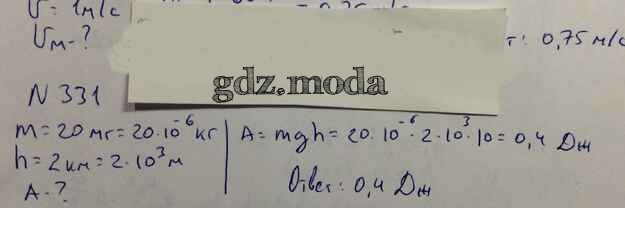 υ = 1 м/с
υм - ?
: 0,75 м/с
gdz.moda
N 331
m = 20 мг = 20·10⁻⁶ кг
h = 2 км = 2·10³ м
A - ?
A = mgh = 20·10⁻⁶·2·10³·10 = 0,4 Дж
Ответ: 0,4 Дж